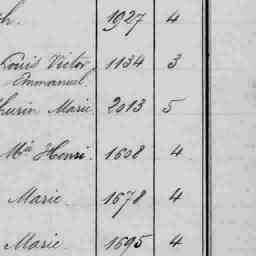 ph. 1927 4
Louis Victor 1134 3
Emmanuel.
thurin Marie 2013 5
Mie Henri. 1608 4
Marie 1678 4
Marie 1695 4